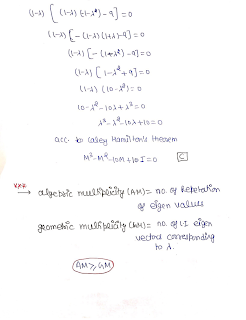 (1-λ) [ (1-λ) (-1-λ) - 9 ] = 0
(1-λ) [ - (1-λ) (1+λ) - 9 ] = 0
(1-λ) [ - (1-λ²) - 9 ] = 0
(1-λ) [ 1 - λ² + 9 ] = 0
(1-λ) (10-λ²) = 0
10 - λ² - 10λ + λ³ = 0
λ³ - λ² - 10λ + 10 = 0
acc. to Caley Hamilton's theorem
M³ - M² - 10M + 10I = 0 C
*** → algebric multiplicity (AM) = no. of Repetation
of eigen values
geometric multiplicity (GM) = no. of L.I eigen
vectors corresponding
to λ.
AM ≥ GM